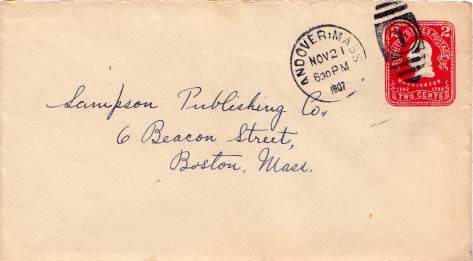 ANDOVER, MASS
NOV 21
630 PM
1907
2 2
UNITED STATES POSTAGE
WASHINGTON
1732 1799
TWO CENTS
Sampson Publishing Co,
6 Beacon Street,
Boston, Mass.